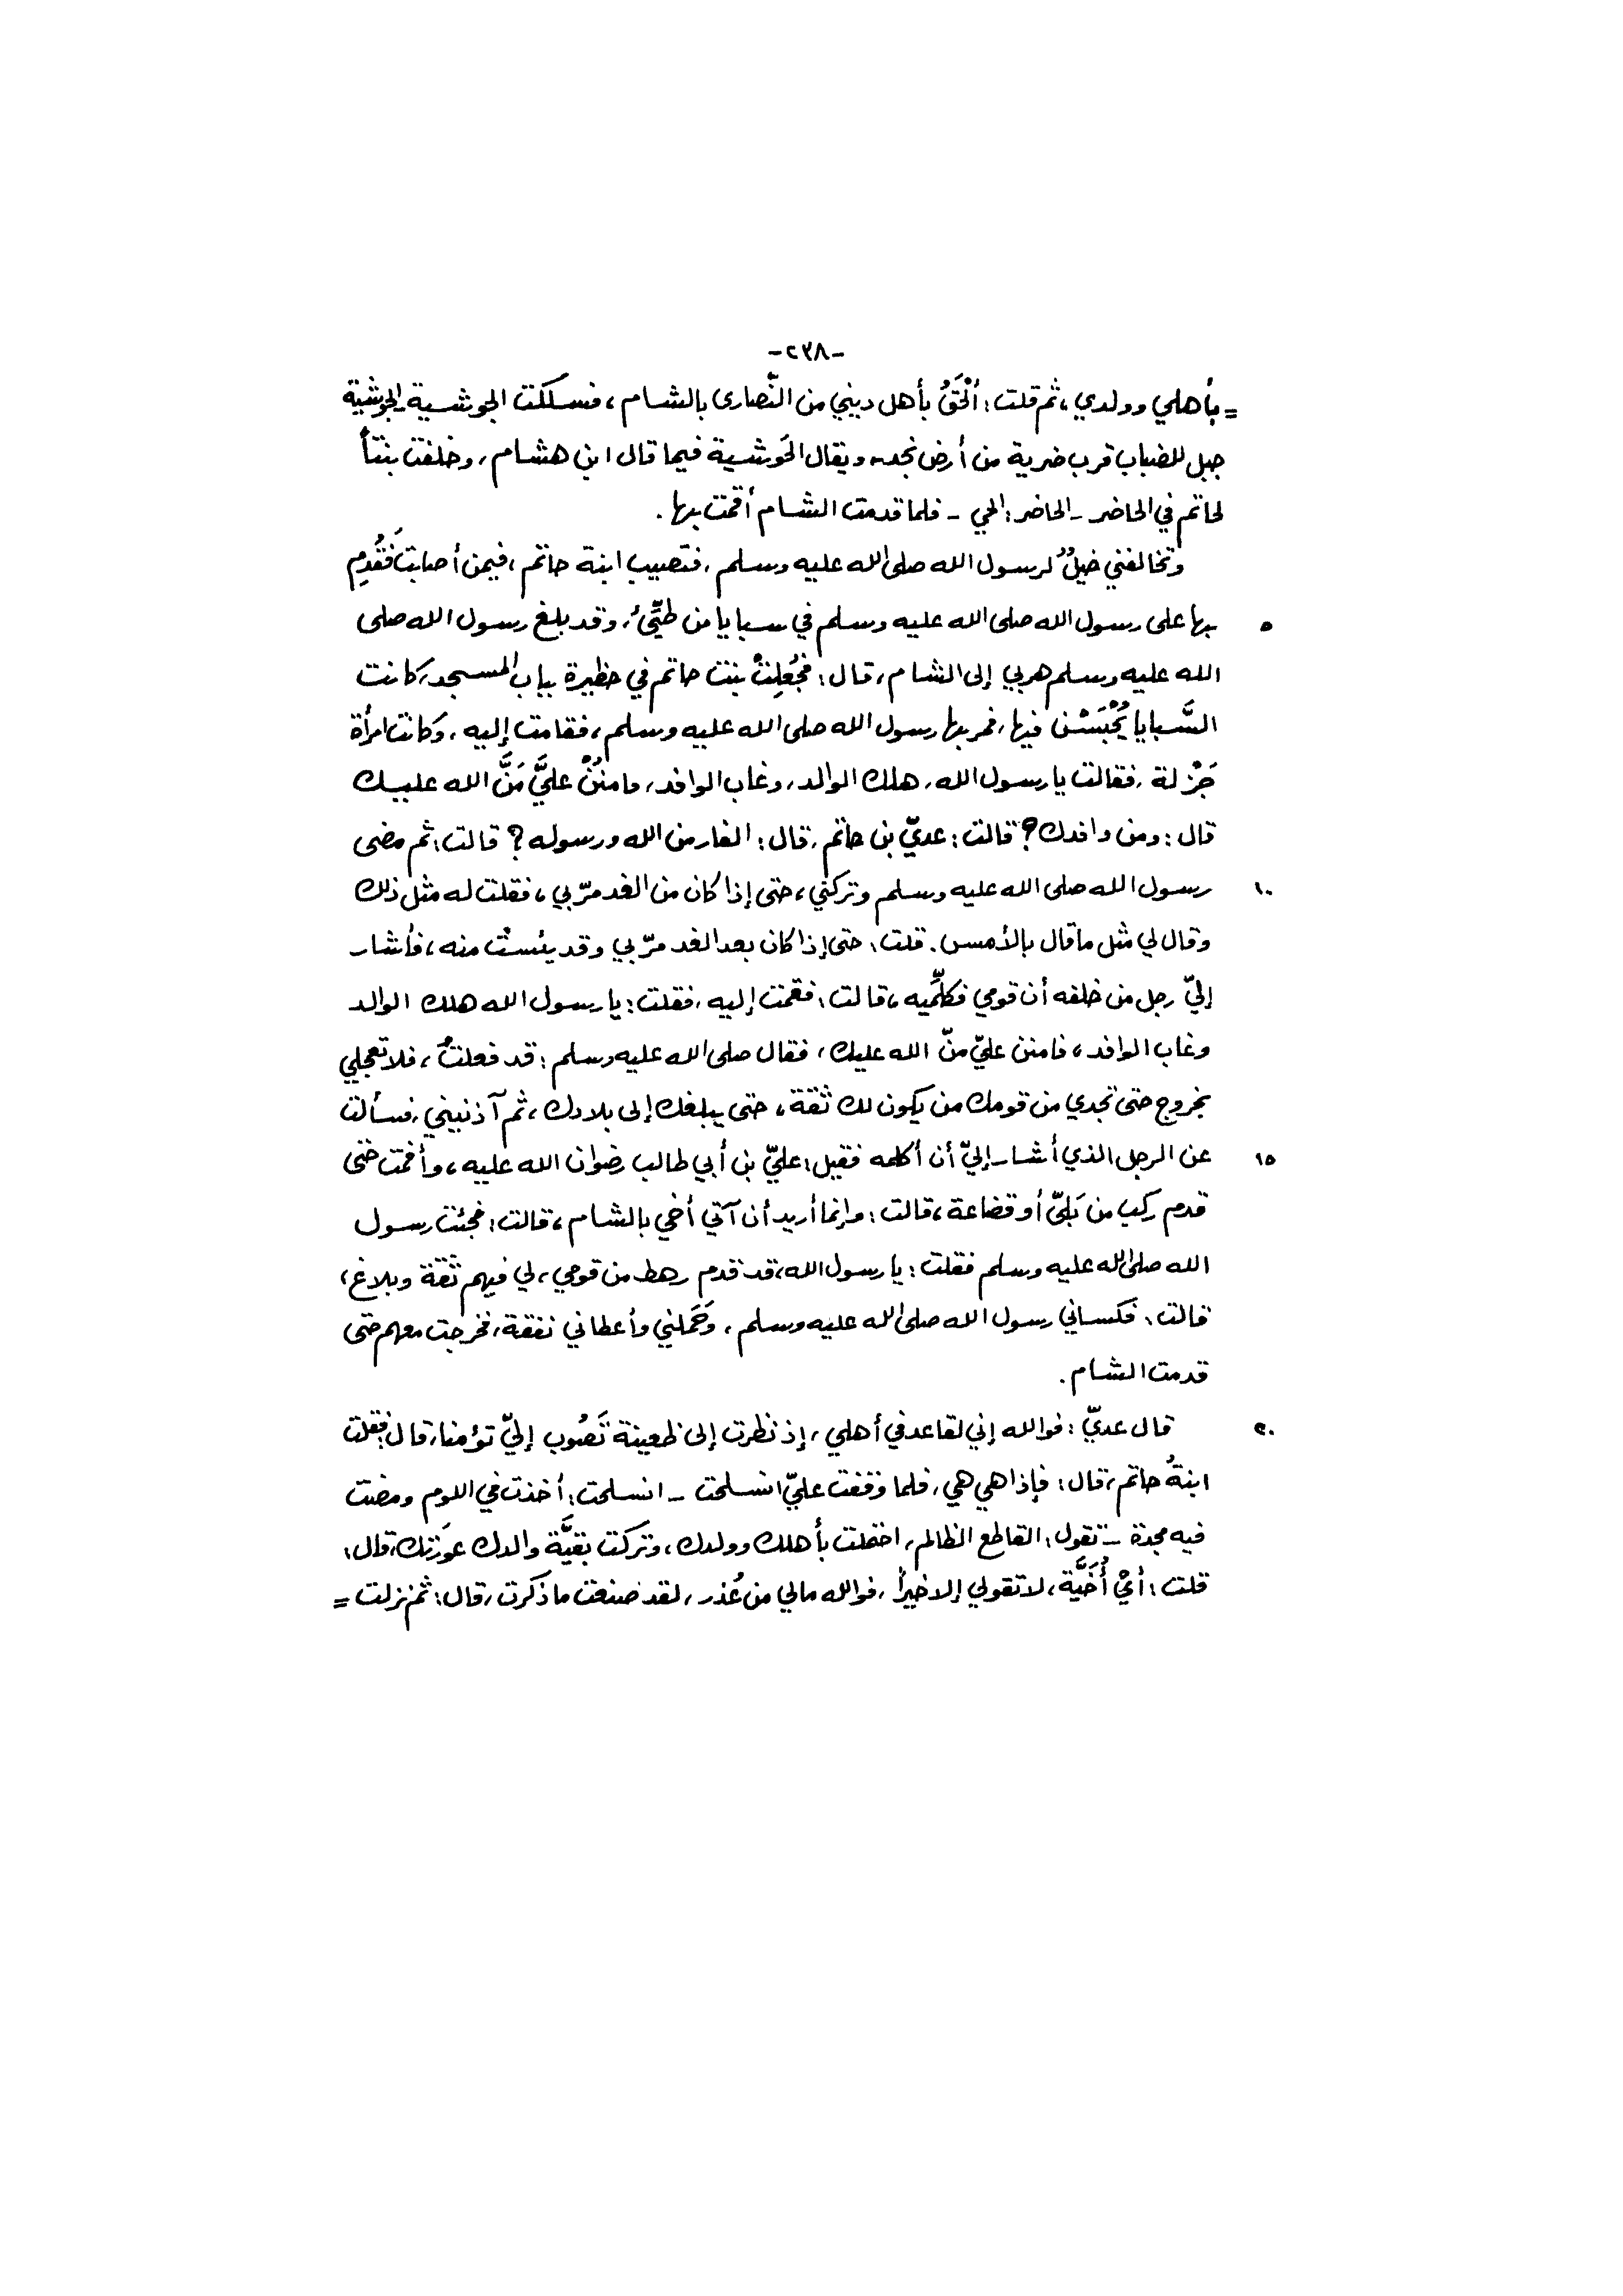 -٢٣٨-
= بأهلي وولدي، ثم قلت: أَلْحَقُ بأهل ديني من النّصارى بالشام، فسلكت الجوشية - الجوشية
جبل للضباب قرب ضرية من أرض نجد - ويقال الحَوشية فيما قال ابن هشام، وخلفت بنتاً
لحاتم في الحاضر - الحاضر: الحي - فلما قدمت الشام أقمت بها.
وتخالفني خيلٌ لرسول الله صلى الله عليه وسلم، فتصيب ابنة حاتم، فيمن أصابت فَقُدِم
٥ بها على رسول الله صلى الله عليه وسلم في سبايا من طيّئ، وقد بلغ رسول الله صلى
الله عليه وسلم هربي إلى الشام، قال: فجُعِلتْ بنت حاتم في حظيرة بباب المسجد، كانت
السَّبايا يُحْبَسْن فيها، فمر بها رسول الله صلى الله عليه وسلم، فقامت إليه، وكانت امرأة
جَزْلة، فقالت يا رسول الله، هلك الوالد، وغاب الوافد، فامنُنْ عليَّ مَنَّ الله عليك
قال: ومن وافدك؟ قالت: عديّ بن حاتم، قال: الفار من الله ورسوله؟ قالت: ثم مضى
١٠ رسول الله صلى الله عليه وسلم وتركني، حتى إذا كان من الغد مرّ بي، فقلت له مثل ذلك
وقال لي مثل ما قال بالأمس. قلت: حتى إذا كان بعد الغد مرّ بي وقد يئستْ منه، فأشار
إليّ رجل من خلفه أن قومي فكلّميه، قالت: فقمت إليه، فقلت: يا رسول الله هلك الوالد
وغاب الوافد، فامنن عليّ منّ الله عليك، فقال صلى الله عليه وسلم: قد فعلتُ، فلا تعجلي
بخروج حتى تجدي من قومك من يكون لك ثقة، حتى يبلغك إلى بلادك، ثم آذنيني، فسألت
١٥ عن الرجل الذي أشار إليّ أن أكلمه فقيل: عليّ بن أبي طالب رضوان الله عليه، وأقمت حتى
قدم ركب من بَليّ أو قضاعة، قالت: وإنما أريد أن آتي أخي بالشام، قالت: فجئت رسول
الله صلى الله عليه وسلم فقلت: يا رسول الله، قد قدم رهط من قومي، لي فيهم ثقة وبلاغ،
قالت: فكساني رسول الله صلى الله عليه وسلم، وحَملني وأعطاني نفقة، فخرجت معهم حتى
قدمت الشام.
٢٠ قال عديّ: فوالله إني لقاعد في أهلي، إذ نظرت إلى ظعينة تَصُوب إليّ تؤمنا، قال: فقلت
ابنةُ حاتم، قال: فإذا هي هي، فلما وقفت عليّ انسلحت - انسلحت: أخذت في اللوم ومضت
فيه مجدة - تقول: القاطع الظالم، احتملت بأهلك وولدك، وتركت بقيَّة والدك عورتك، قال:
قلت: أيْ أُخَيَّة، لا تقولي إلا خيراً، فوالله مالي من عُذر، لقد صنعت ما ذكرت، قال: ثم نزلت =